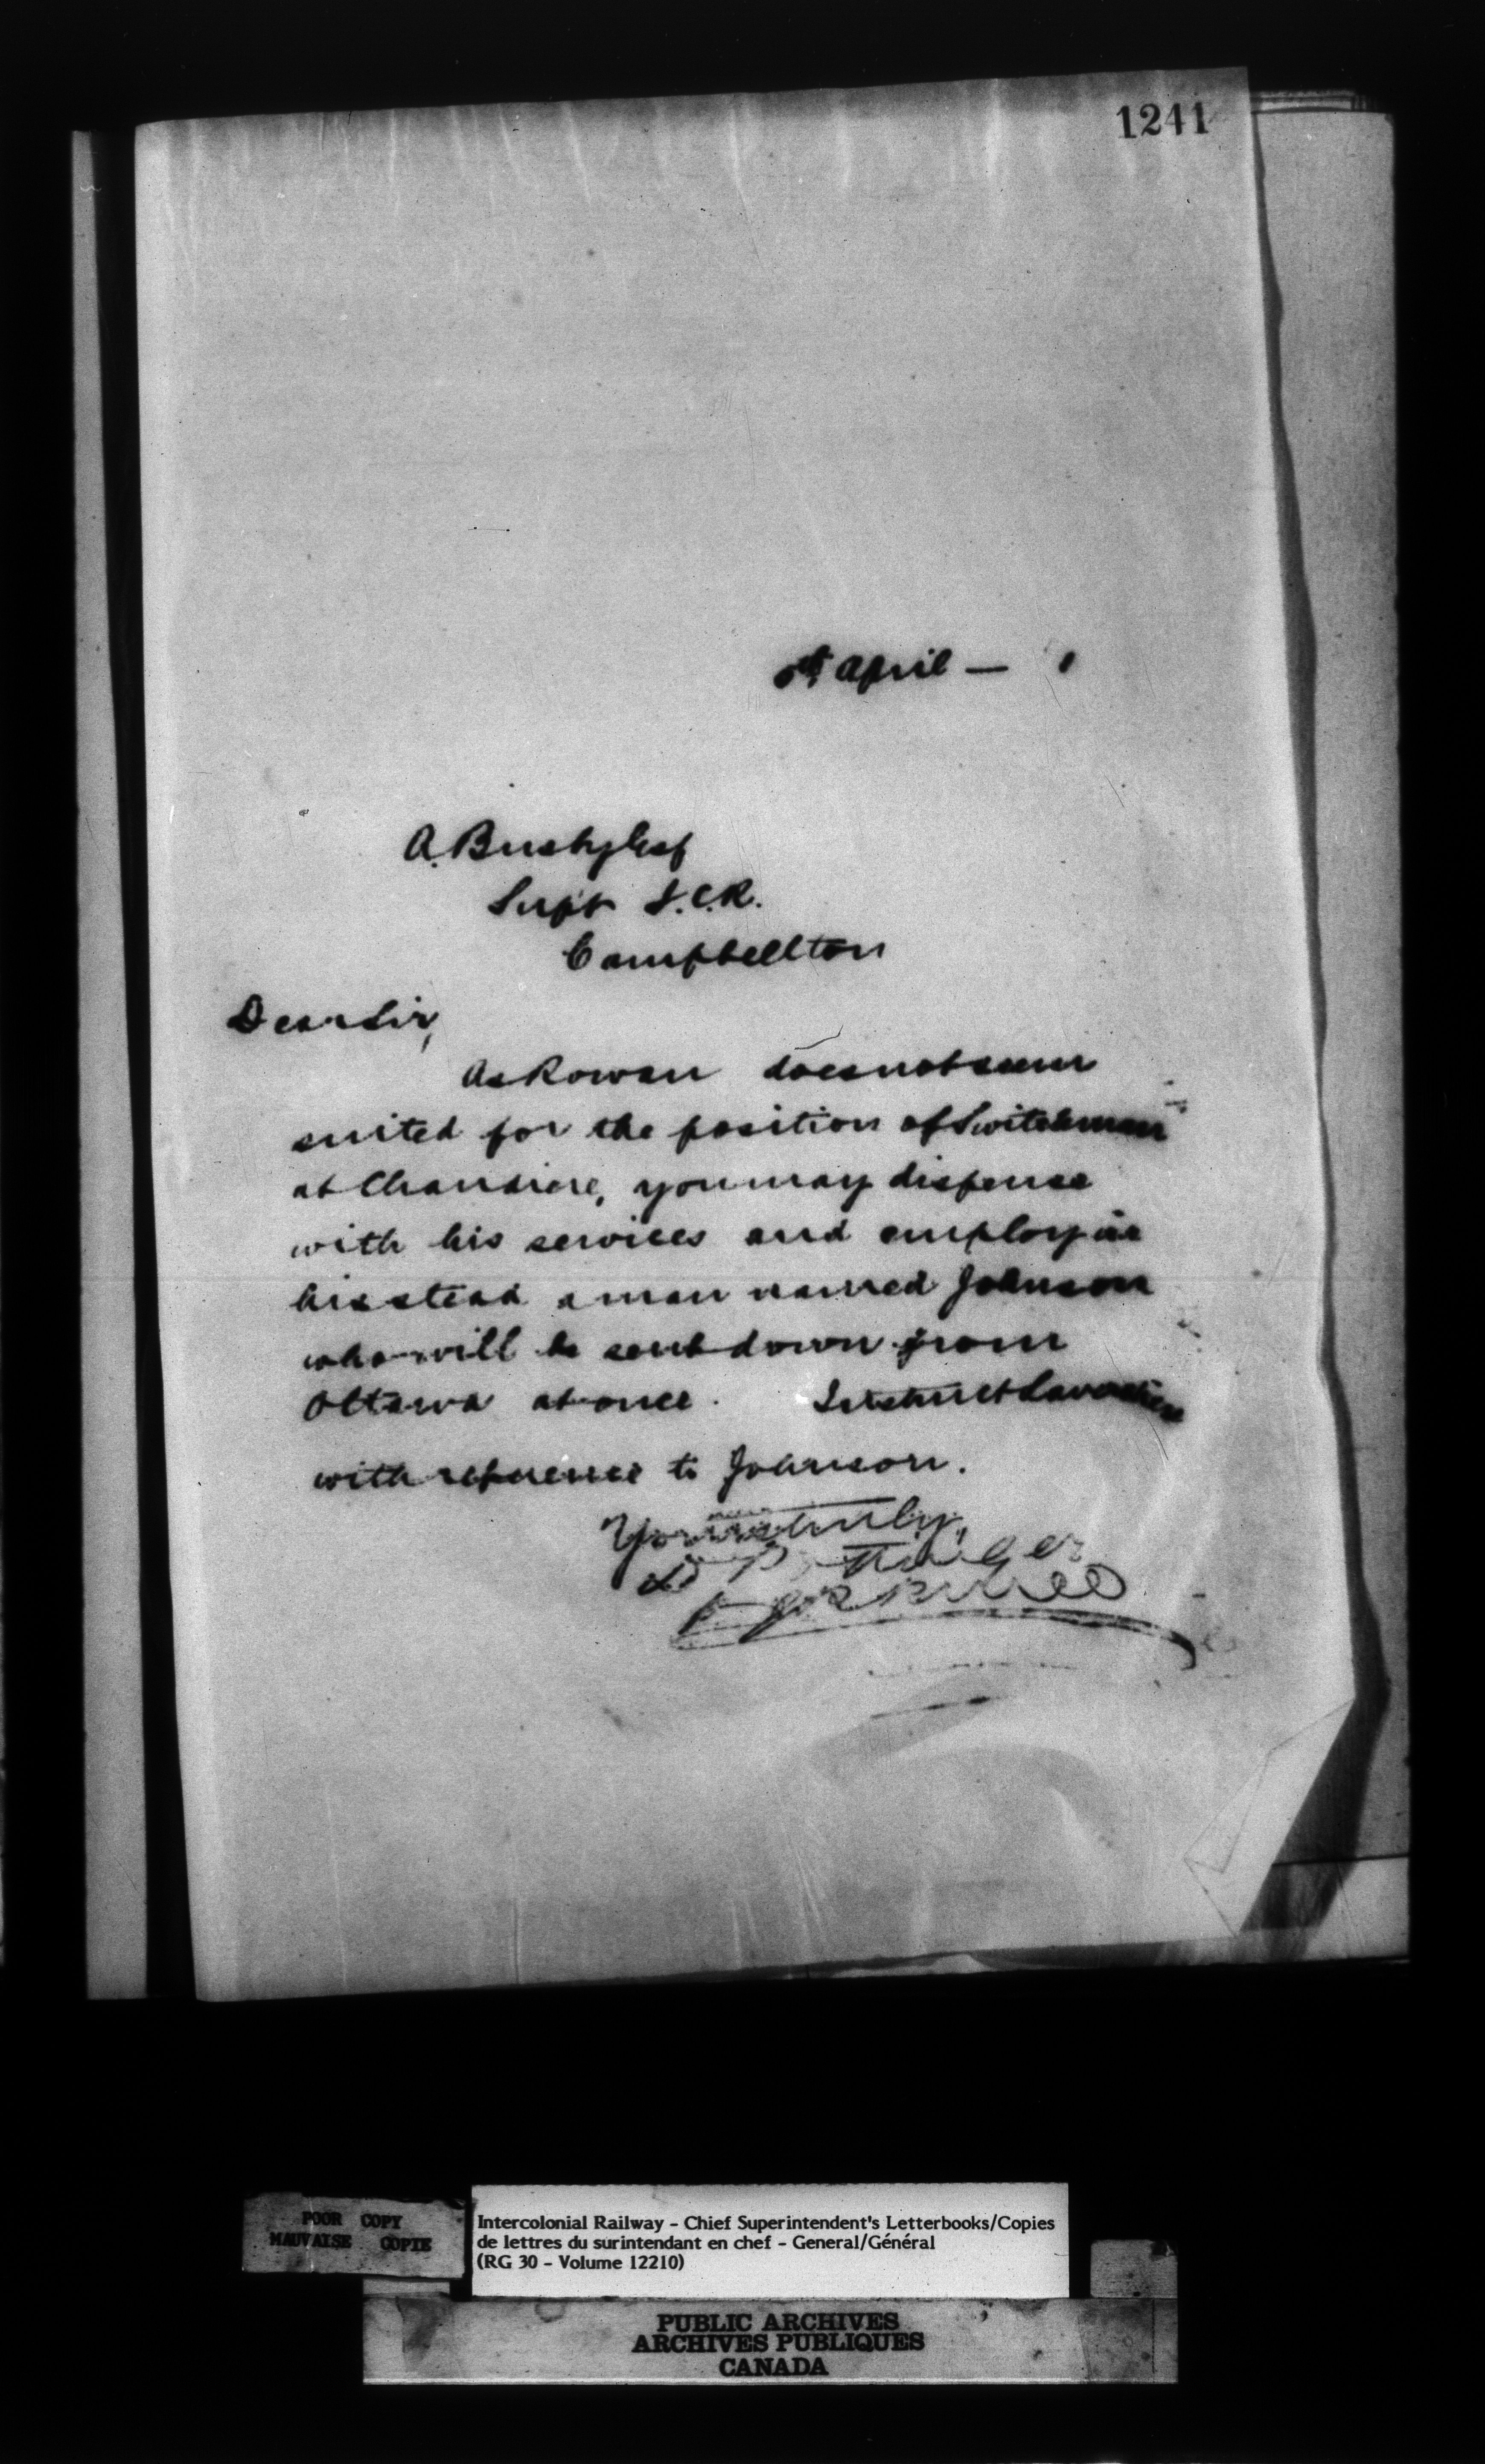 1241
April — 1
A. Busby Esq
Supt I.C.R.
Campbellton
Dear Sir,
As Rowan does not seem
suited for the position of Switchman
at Chaudiere, you may dispense
with his services and employ in
his stead a man named Johnson
who will be sent down from
Ottawa at once. Instruct
with reference to Johnson.
Yours truly,
D Pottinger
POOR COPY
MAUVAISE COPIE
Intercolonial Railway - Chief Superintendent's Letterbooks/Copies
de lettres du surintendant en chef - General/Général
(RG 30 - Volume 12210)
PUBLIC ARCHIVES
ARCHIVES PUBLIQUES
CANADA